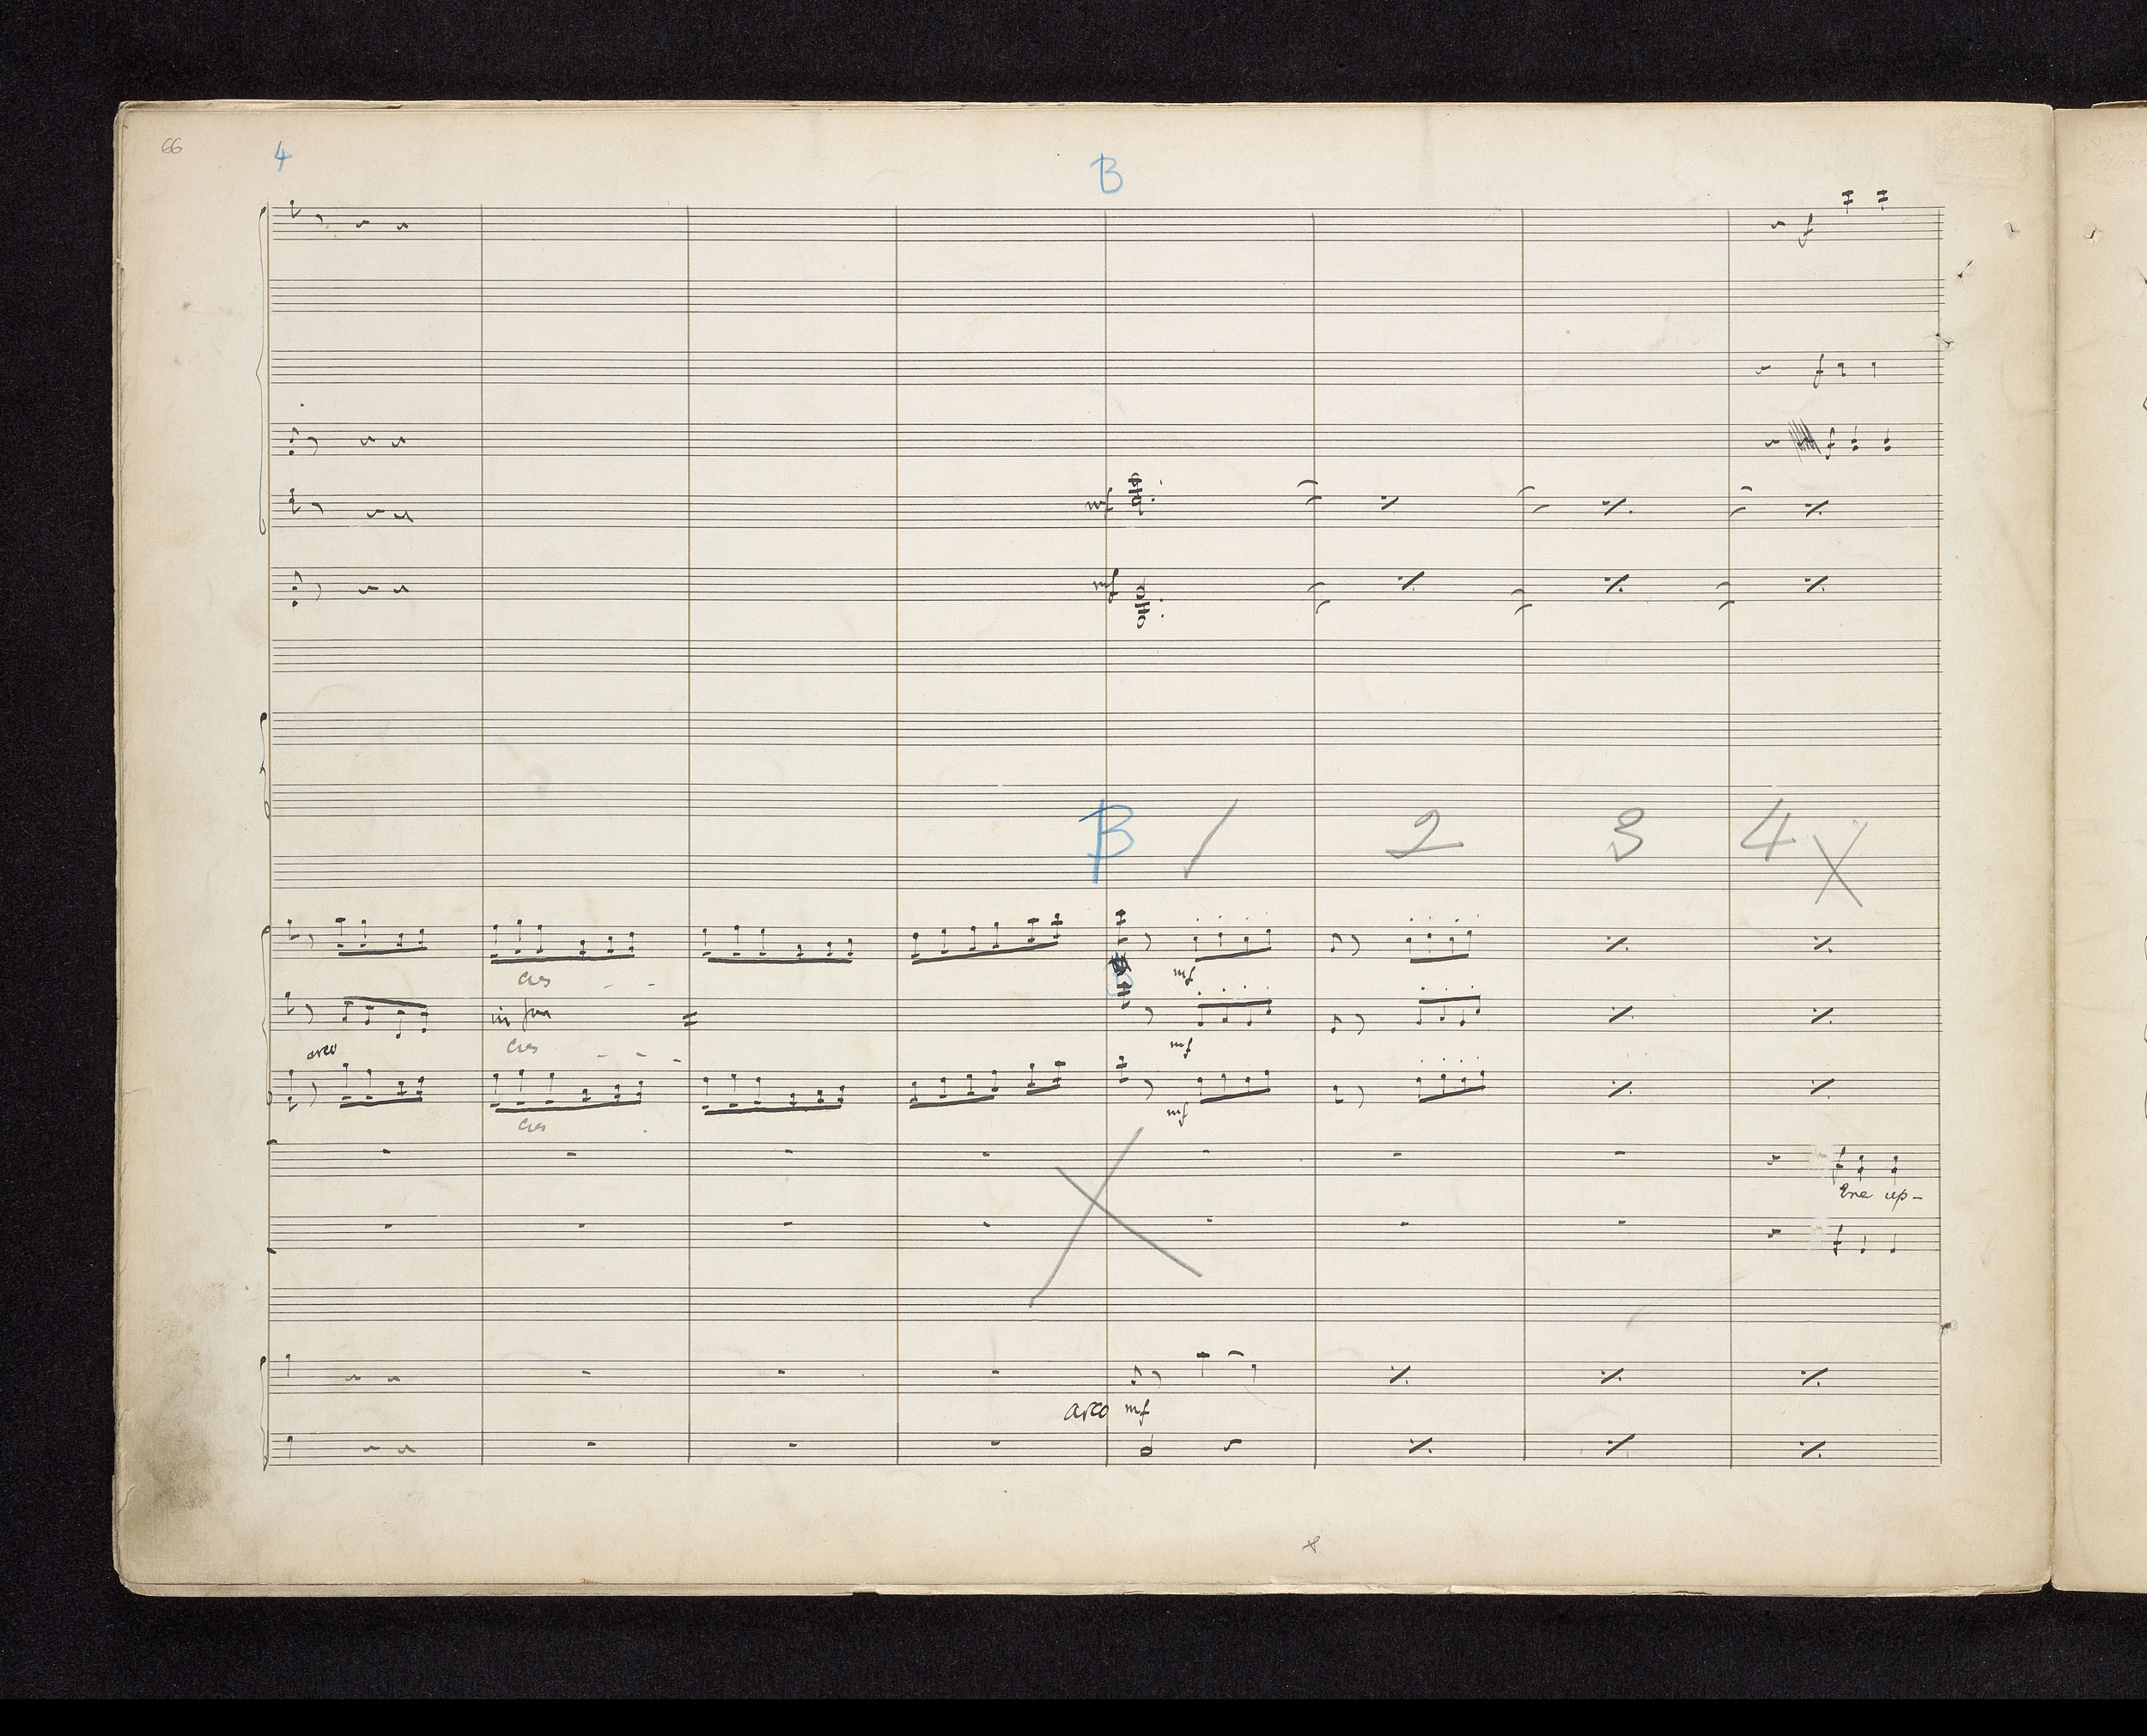 66
4
B
f
f
f
mf
mf
B 1 2 3 4 X
cres - -
mf
in 8va
arco
cres - - -
mf
cres
mf
f
Ere up-
f
arco mf